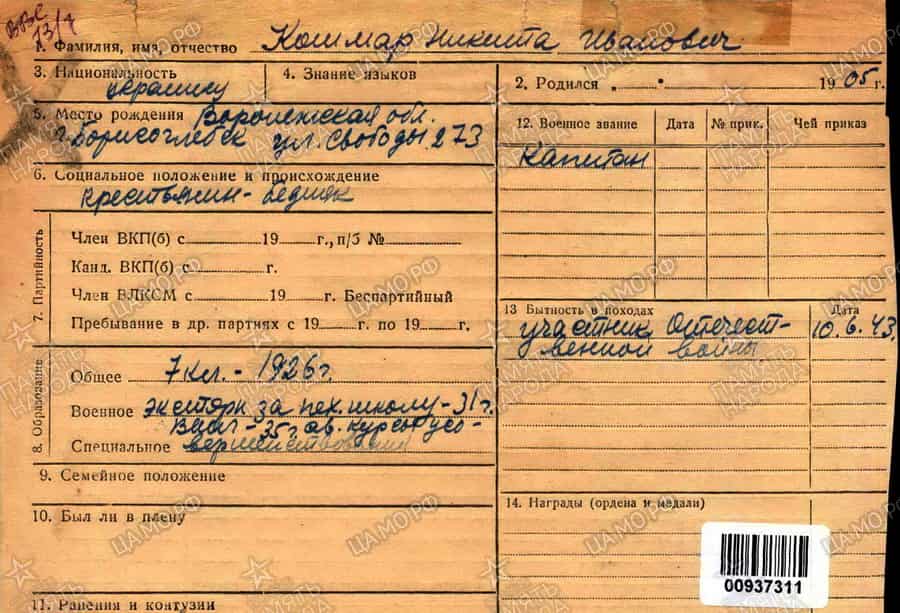 ВВС
13/7
1. Фамилия, имя, отчество Кошмар Никита Иванович
3. Национальность украинец
4. Знание языков
2. Родился „ . “ 1905 г.
5. Место рождения Воронежская обл.
г. Борисоглебск ул. Свободы 273
6. Социальное положение и происхождение
крестьянин - бедняк
7. Партийность
Член ВКП(б) с 19 г., п/б №
Канд. ВКП(б) с г.
Член ВЛКСМ с 19 г. Беспартийный
Пребывание в др. партиях с 19 г. по 19 г.
8. Образование
Общее 7 кл. - 1926 г.
Военное экстерн за пех. школу - 31 г.
35 г. ав. курсы усо-
Специальное вершенствования
9. Семейное положение
10. Был ли в плену
11. Ранения и контузии
12. Военное звание Дата № прик. Чей приказ
Капитан
13 Бытность в походах Дата
участник Отечест- 10.6.43
венной войны
14. Награды (ордена и медали)
00937311
ЦАМО.РФ
ПАМЯТЬ
НАРОДА